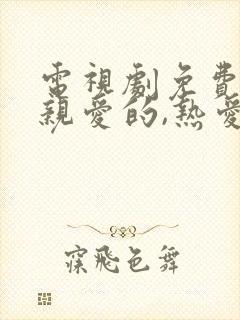 電視劇免費
親愛的,熱愛
寐飛色舞